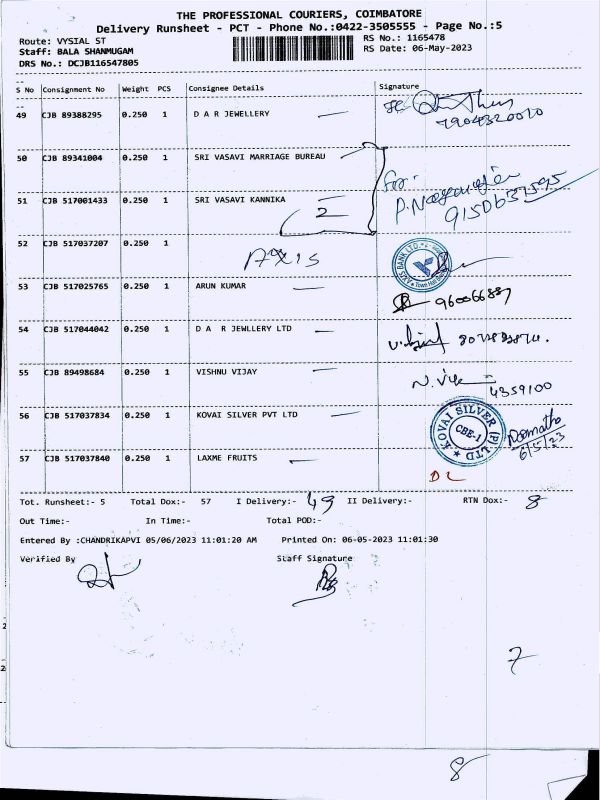 THE PROFESSIONAL COURIERS, COIMBATORE
Delivery Runsheet - PCT - Phone No.:0422-3505555 - Page No.:5
Route: VYSIAL ST RS No.: 1165478
Staff: BALA SHANMUGAM RS Date: 06-May-2023
DRS No.: DCJB116547805
S No Consignment No Weight PCS Consignee Details Signature
49 CJB 89388295 0.250 1 D A R JEWELLERY
7904320010
50 CJB 89341004 0.250 1 SRI VASAVI MARRIAGE BUREAU
For:
51 CJB 517001433 0.250 1 SRI VASAVI KANNIKA
2
52 CJB 517037207 0.250 1
AXIS
AXIS BANK LTD.
53 CJB 517025765 0.250 1 ARUN KUMAR
54 CJB 517044042 0.250 1 D A R JEWLLERY LTD
55 CJB 89498684 0.250 1 VISHNU VIJAY
4359100
56 CJB 517037834 0.250 1 KOVAI SILVER PVT LTD
KOVAI SILVER (P) LTD
CBE-1
6/5/23
57 CJB 517037840 0.250 1 LAXME FRUITS
DL
Tot. Runsheet:- 5 Total Dox:- 57 I Delivery:- 49 II Delivery:- RTN Dox:- 8
Out Time:- In Time:- Total POD:-
Entered By :CHANDRIKAPVI 05/06/2023 11:01:20 AM Printed On: 06-05-2023 11:01:30
Verified By Staff Signature
7
8